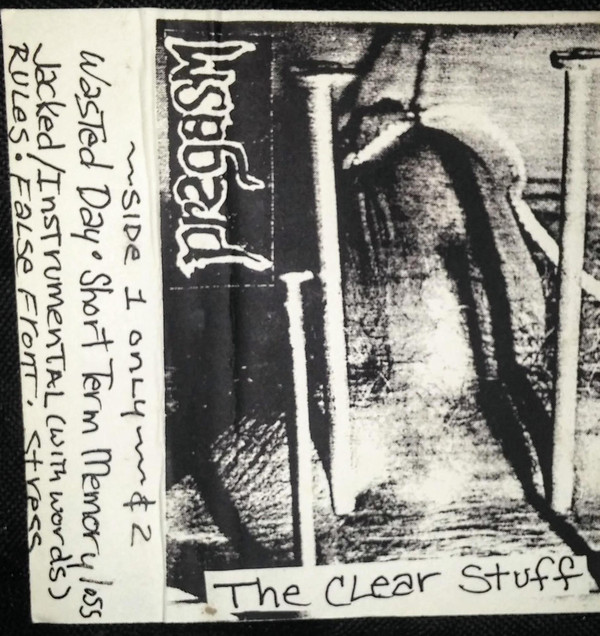 ~SIDE 1 only~ & 2
Wasted Day • Short Term Memory loss
Jacked/Instrumental (with words)
RULES • False Front, Stress
The Clear Stuff